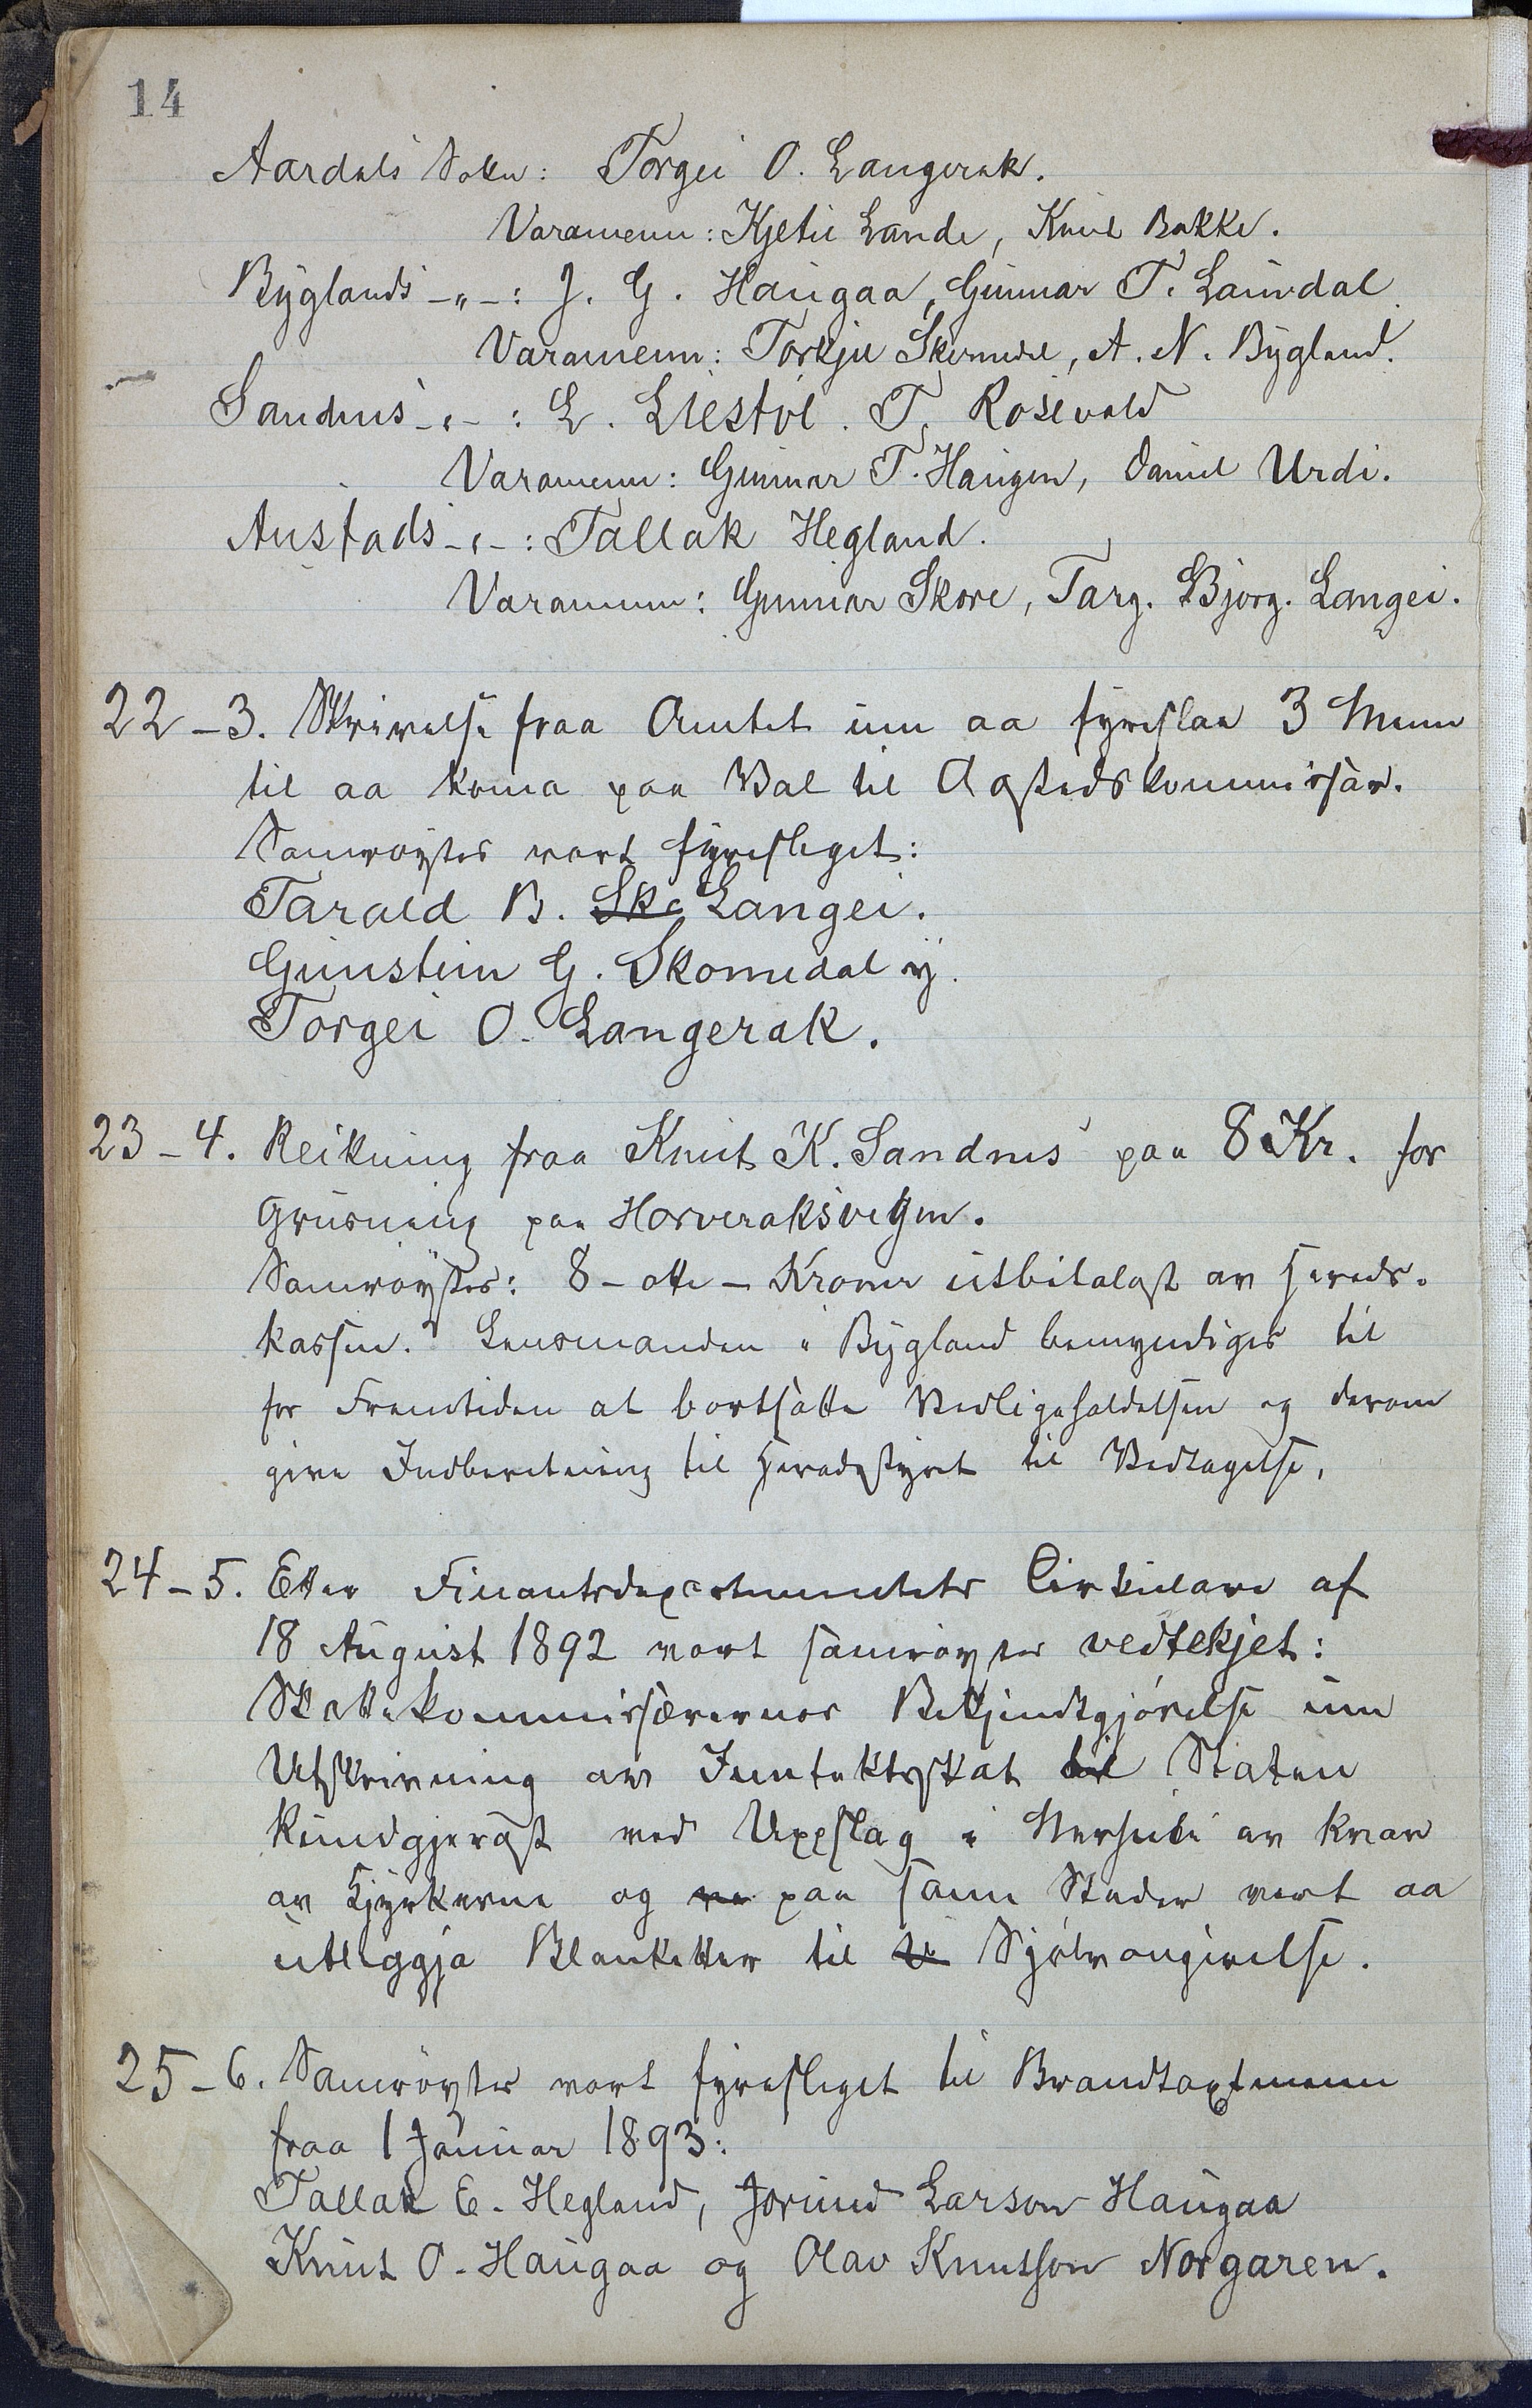 14
Aardals Sokn: Torgei O. Langerak.
Varamenn: Kjetil Lande, Knut Bakke.
Byglands -„-: J. G. Haugaa, Gunnar T. Lauvdal
Varamenn: Torkjel Skomedal, A. N. Bygland.
Sandnes -„-: L. Liestøl. T. Rosevold
Varamenn: Gunnar T. Haugen, Daniel Urdi.
Austads -„-: Tallak Hegland.
Varamenn: Gunnar Skore, Targ. Bjorg. Langei.
22-3. Skrivelse fraa Amtet um aa fyreslaa 3 Menn
til aa koma paa Val til Aastedskommissær.
Samrøystes vart fyresleget:
Tarald B. Sko Langei.
Gunstein G. Skomedal y.
Torgei O. Langerak.
23-4. Reikning fraa Knut K. Sandnes paa 8 Kr. for
Grusning paa Horveraksvegen.
Samrøystes: 8 - otte - Kroner utbetalast av Hereds-
kassen. Lensmanden i Bygland bemyndiges til
for Fremtiden at bortsætte Vedligeholdelsen og derom
give Indberetning til Heradsstyret til Vedtagelse.
24-5. Etter Finantsdepartementets Cirkulære af
18 August 1892 vart samrøystes vedtekjet:
Skattekommissærernes Bekjendtgjørelse um
Utskrivning av Inntektsskat til Staten
kundgjerast ved Uppslag i Nerheita av kvar
av Kjyrkorne og va paa same Stader vert aa
utleggja Blanketter til S Sjølvangivelse.
25-6. Samrøystes vart fyresleget til Brandtaxtmenn
fraa 1 Januar 1893:
Tallak E. Hegland, Jorund Larson Haugaa
Knut O. Haugaa og Olav Knutson Norgaren.